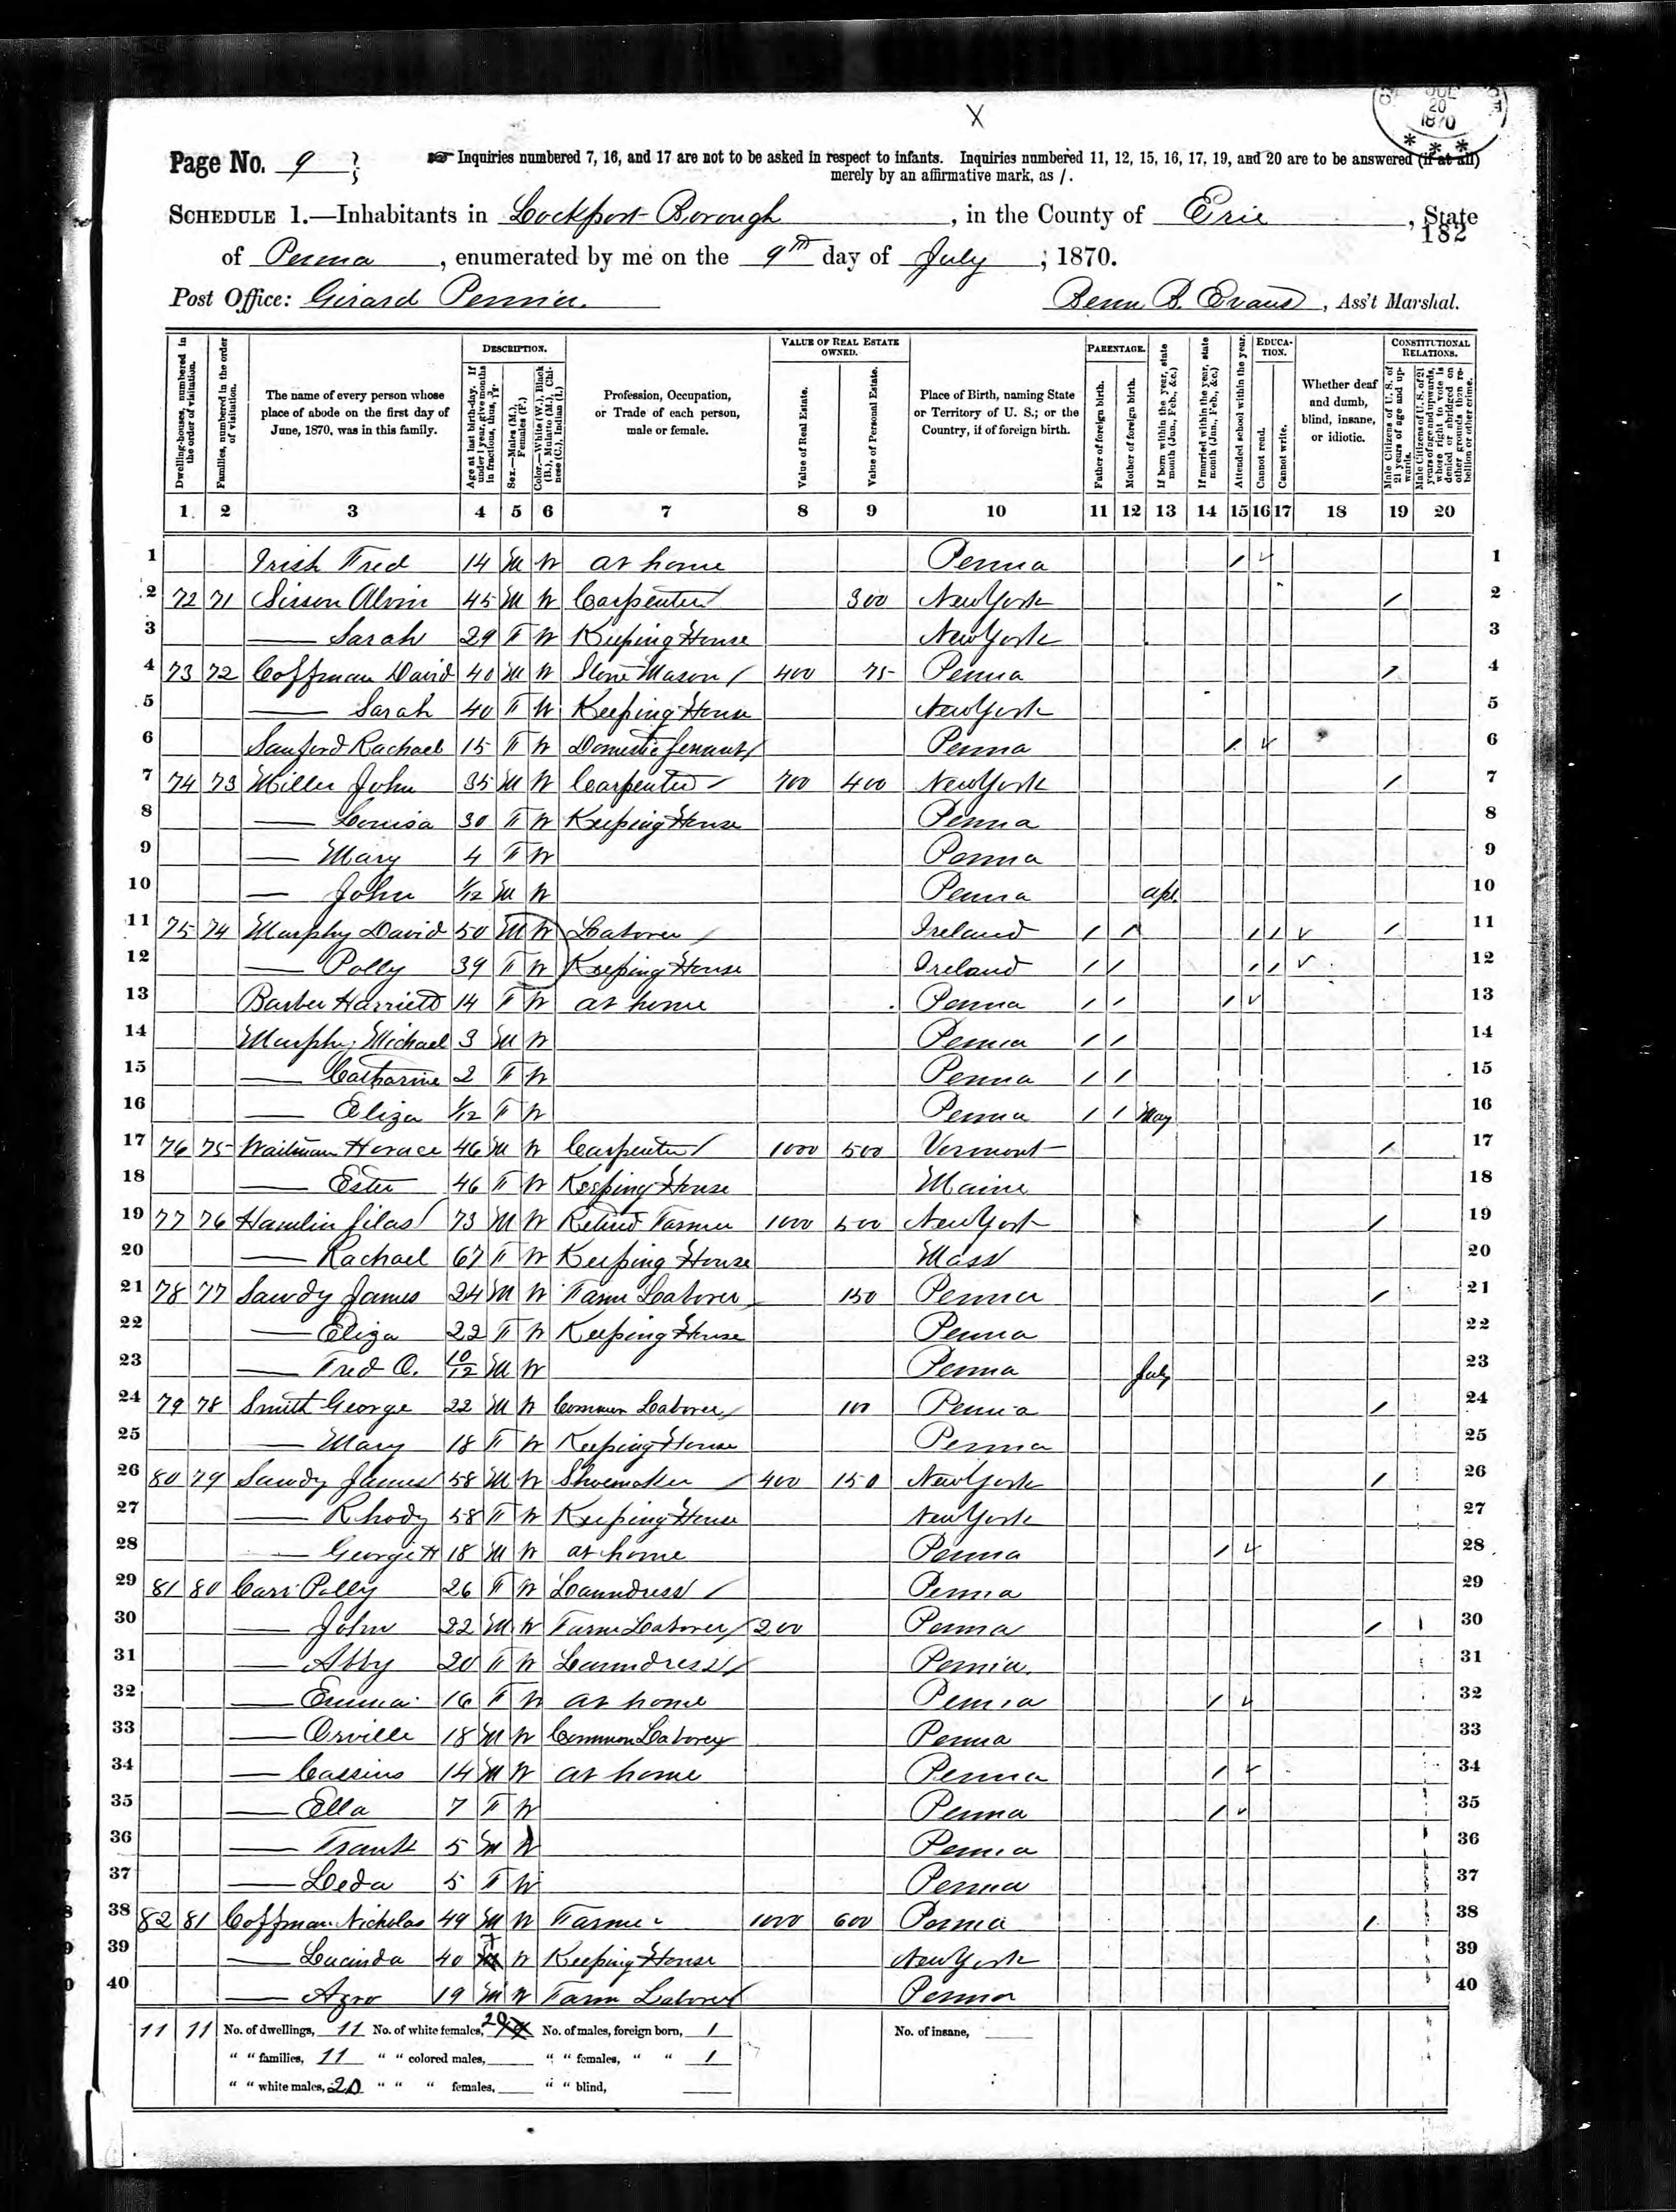 X
JUL
20
1870
* * *
Page No. 9
Inquiries numbered 7, 16, and 17 are not to be asked in respect to infants. Inquiries numbered 11, 12, 15, 16, 17, 19, and 20 are to be answered (if at all)
merely by an affirmative mark, as /.
SCHEDULE 1.—Inhabitants in Lockport Borough, in the County of Erie, State
182
of Penna, enumerated by me on the 9th day of July, 1870.
Post Office: Girard Penn'a. Benn B. Evans, Ass't Marshal.
Dwelling-houses, numbered in the order of visitation.
Families, numbered in the order of visitation.
The name of every person whose place of abode on the first day of June, 1870, was in this family.
DESCRIPTION.
Age at last birth-day. If under 1 year, give months in fractions, thus, 3/12.
Sex.—Males (M.), Females (F.)
Color.—White (W.), Black (B.), Mulatto (M.), Chinese (C.), Indian (I.)
Profession, Occupation, or Trade of each person, male or female.
VALUE OF REAL ESTATE OWNED.
Value of Real Estate.
Value of Personal Estate.
Place of Birth, naming State or Territory of U. S.; or the Country, if of foreign birth.
PARENTAGE.
Father of foreign birth.
Mother of foreign birth.
If born within the year, state month (Jan., Feb., &c.)
If married within the year, state month (Jan., Feb., &c.)
Attended school within the year.
EDUCATION.
Cannot read.
Cannot write.
Whether deaf and dumb, blind, insane, or idiotic.
CONSTITUTIONAL RELATIONS.
Male Citizens of U. S. of 21 years of age and upwards.
Male Citizens of U. S. of 21 years of age and upwards, whose right to vote is denied or abridged on other grounds than rebellion or other crime.
1 2 3 4 5 6 7 8 9 10 11 12 13 14 15 16 17 18 19 20
1 Irish Fred 14 M W at home Penna / ✓ 1
2 72 71 Sisson Alvin 45 M W Carpenter / 300 New York / 2
3 — Sarah 29 F W Keeping House New York 3
4 73 72 Coffman David 40 M W Stone Mason / 400 75 Penna / 4
5 — Sarah 40 F W Keeping House New York 5
6 Sanford Rachael 15 F W Domestic Servant / Penna / ✓ 6
7 74 73 Miller John 35 M W Carpenter / 700 400 New York / 7
8 — Louisa 30 F W Keeping House Penna 8
9 — Mary 4 F W Penna 9
10 — John 1/12 M W Penna apl. 10
11 75 74 Murphy David 50 M W Laborer / Ireland / / / / ✓ / 11
12 — Polly 39 F W Keeping House Ireland / / / / ✓ 12
13 Barber Harriett 14 F W at home Penna / / / ✓ 13
14 Murphy Michael 3 M W Penna / / 14
15 — Catharine 2 F W Penna / / 15
16 — Eliza 1/12 F W Penna / / May 16
17 76 75 Horace 46 M W Carpenter / 1000 500 Vermont / 17
18 — Ester 46 F W Keeping House Maine 18
19 77 76 Hamlin Silas 73 M W Retired Farmer 1000 500 New York / 19
20 — Rachael 67 F W Keeping House Mass 20
21 78 77 Sawdy James 24 M W Farm Laborer 150 Penna / 21
22 — Eliza 22 F W Keeping House Penna 22
23 — Fred O. 10/12 M W Penna July 23
24 79 78 Smith George 22 M W Common Laborer / 100 Penna / 24
25 — Mary 18 F W Keeping House Penna 25
26 80 79 Sawdy James 58 M W Shoemaker / 400 150 New York / 26
27 — Rhody 58 F W Keeping House New York 27
28 — George H 18 M W at home Penna / ✓ 28
29 81 80 Carr Polly 26 F W Laundress / Penna 29
30 — John 22 M W Farm Laborer / 200 Penna / 30
31 — Abby 20 F W Laundress / Penna 31
32 — Emma 16 F W at home Penna / ✓ 32
33 — Orville 18 M W Common Laborer Penna 33
34 — Cassius 14 M W at home Penna / ✓ 34
35 — Ella 7 F W Penna / ✓ 35
36 — Frank 5 M W Penna 36
37 — Leda 5 F W Penna 37
38 82 81 Coffman Nicholas 49 M W Farmer 1000 600 Penna / 38
39 — Lucinda 40 F W Keeping House New York 39
40 — Azro 19 M W Farm Laborer Penna 40
11 11 No. of dwellings, 11 No. of white females, 20 No. of males, foreign born, 1 No. of insane,
" " families, 11 " " colored males, " " females, " " 1
" " white males, 20 " " " females, " " blind,